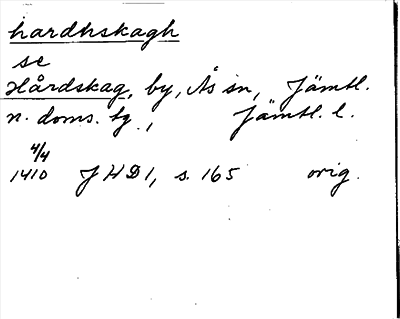 hardhskagh
se
Hårdskag, by, Ås sn, Jämtl.
n. doms. tg., Jämtl. l.
4/4
1410 JHD1, s. 165 orig.